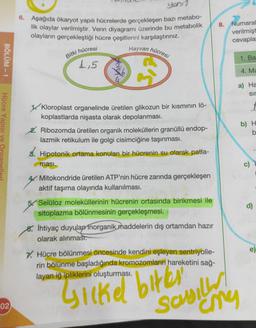 BÖLÜM - 1
Hücre Yapısı ve Organelleri
02
6. Aşağıda ökaryot yapılı hücrelerde gerçekleşen bazı metabo-
lik olaylar verilmiştir. Venn diyagramı üzerinde bu metabolik
olayların gerçekleştiği hücre çeşitlerini karşılaştırınız.
Bitki hücresi
Hayvan hücresi
1,5
1. Kloroplast organelinde üretilen glikozun bir kısmının lö-
koplastlarda nişasta olarak depolanması.
2. Ribozomda üretilen organik moleküllerin granüllü endop-
lazmik retikulum ile golgi cisimciğine taşınması.
3. Hipotonik ortama konulan bir hücrenin su alarak patla-
ması.
4. Mitokondride üretilen ATP'nin hücre zarında gerçekleşen
aktif taşıma olayında kullanılması.
5. Selüloz moleküllerinin hücrenin ortasında birikmesi ile
sitoplazma bölünmesinin gerçekleşmesi.
6. İhtiyaç duyulan inorganik maddelerin dış ortamdan hazır
olarak alınması.
7. Hücre bölünmesi öncesinde kendini eşleyen sentriyolle-
rin bölünme başladığında kromozomların hareketini sağ-
layan iğ ipliklerini oluşturması.
8. Numaral
verilmişt
cevapla
1. Ba
4. M
a) Ha
sır
b) H
b
c)
d)
e)